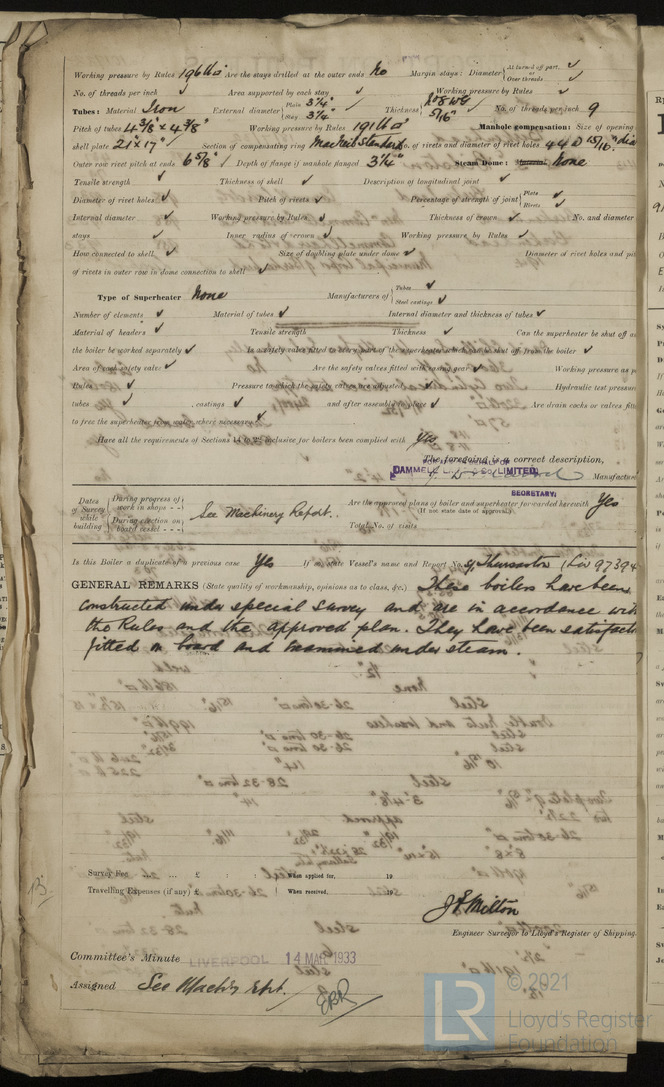 Working pressure by Rules 196 lb □" Are the stays drilled at the outer ends No Margin stays: Diameter { At turned off part, or Over threads ✓
No. of threads per inch ✓ Area supported by each stay ✓ Working pressure by Rules ✓
Tubes: Material Iron External diameter { Plain 3¼" Stay 3¼" Thickness { No 8 WG 5/16" No. of threads per inch 9
Pitch of tubes 4⅜" x 4⅜" Working pressure by Rules 191 lb □" Manhole compensation: Size of opening
shell plate 21" x 17" Section of compensating ring No. of rivets and diameter of rivet holes 44 @ 15/16" dia
Outer row rivet pitch at ends 6⅝" Depth of flange if manhole flanged 3¼" Steam Dome: Material None
Tensile strength ✓ Thickness of shell ✓ Description of longitudinal joint ✓
Diameter of rivet holes ✓ Pitch of rivets ✓ Percentage of strength of joint { Plate ✓ Rivets ✓
Internal diameter ✓ Working pressure by Rules ✓ Thickness of crown ✓ No. and diameter
stays ✓ Inner radius of crown ✓ Working pressure by Rules ✓
How connected to shell ✓ Size of doubling plate under dome ✓ Diameter of rivet holes and pi
of rivets in outer row in dome connection to shell ✓
Type of Superheater None Manufacturers of { Tubes ✓ Steel castings ✓
Number of elements ✓ Material of tubes ✓ Internal diameter and thickness of tubes ✓
Material of headers ✓ Tensile strength Thickness ✓ Can the superheater be shut off a
the boiler be worked separately ✓ Is a safety valve fitted to every part of the superheater which can be shut off from the boiler ✓
Area of each safety valve ✓ Are the safety valves fitted with easing gear ✓ Working pressure as p
Rules ✓ Pressure to which the safety valves are adjusted ✓ Hydraulic test pressure
tubes ✓ castings ✓ and after assembly in place ✓ Are drain cocks or valves fitt
to free the superheater from water where necessary ✓
Have all the requirements of Sections 14 to 22 inclusive for boilers been complied with Yes
The foregoing is a correct description,
LIMITED, Manufactur
SECRETARY.
Dates of Survey while building { During progress of work in shops - - During erection on board vessel - - - See Machinery Report. Are the approved plans of boiler and superheater forwarded herewith Yes
(If not state date of approval.)
Total No. of visits
Is this Boiler a duplicate of a previous case Yes If so, state Vessel's name and Report No. Thurston (Liv 97394
GENERAL REMARKS (State quality of workmanship, opinions as to class, &c.) These boilers have been
constructed under special survey and are in accordance with
the Rules and the approved plan. They have been satisfact
fitted on board and examined under steam.
Survey Fee ... ... £ : : When applied for, 19
Travelling Expenses (if any) £ : : When received, 19
J F Milton
Engineer Surveyor to Lloyd's Register of Shipping.
Committee's Minute LIVERPOOL 14 MAR 1933
Assigned See Machy Rpt.
© 2021
LR Lloyd's Register
Foundation